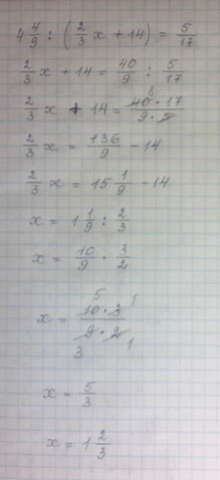 4 4/9 : (2/3 x + 14) = 5/17
2/3 x + 14 = 40/9 : 5/17
2/3 x + 14 = 40 · 17 / 9 · 5 8
2/3 x = 136/9 - 14
2/3 x = 15 1/9 - 14
x = 1 1/9 : 2/3
x = 10/9 · 3/2
x = 10 · 3 / 9 · 2 5 1 3 1
x = 5/3
x = 1 2/3